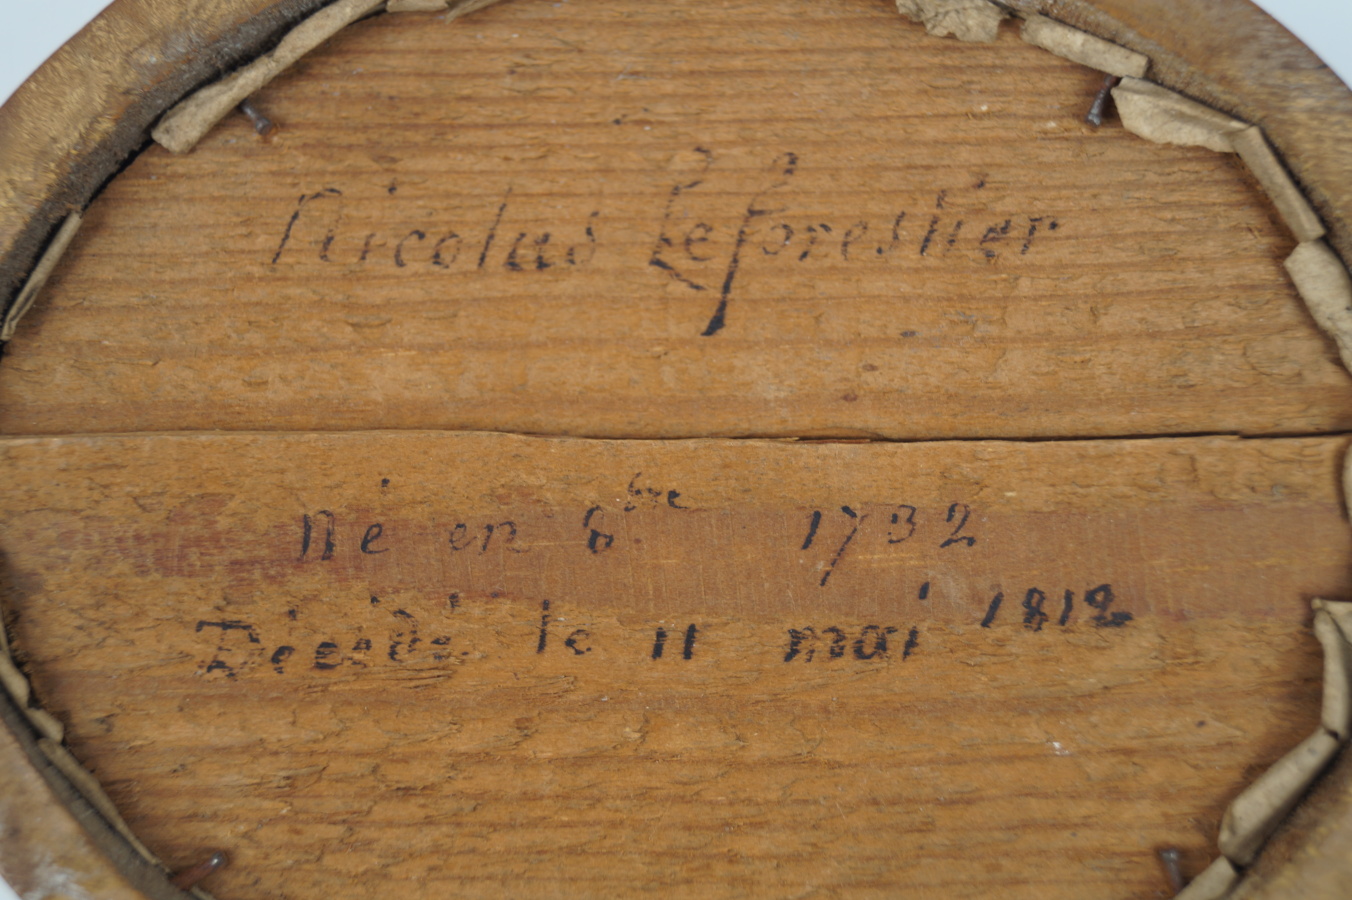 Nicolas Leforestier
Né en 8bre 1732
Décédé le 11 mai 1812